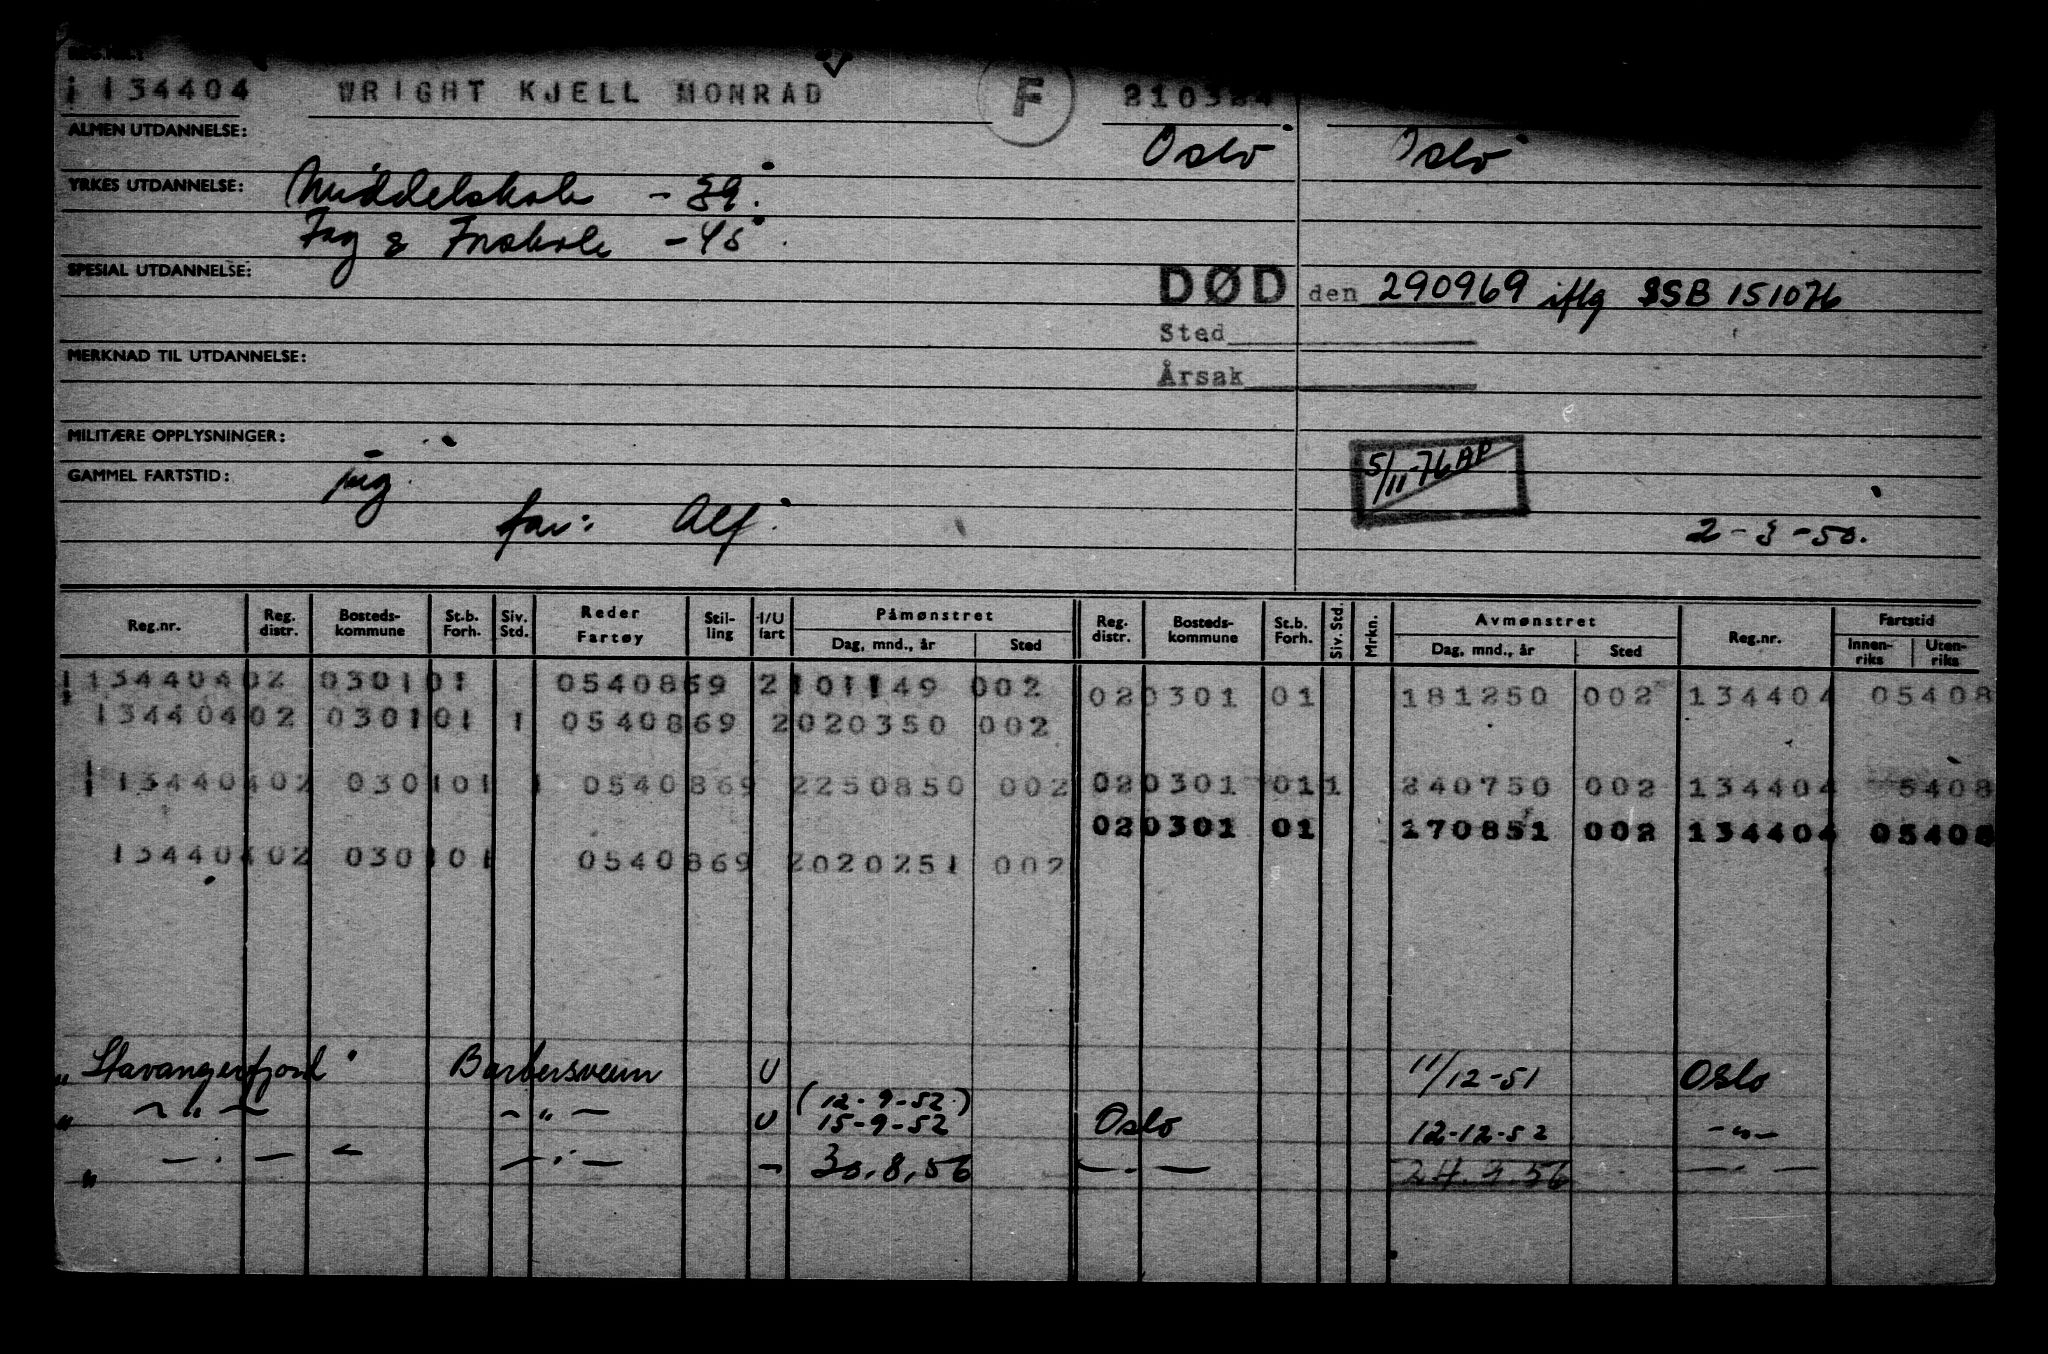 134404 WRIGHT KJELL MONRAD F 210324
ALMEN UTDANNELSE: Oslo Oslo
YRKES UTDANNELSE: Middelskole - 39.
Fag & Frskole - 45.
SPESIAL UTDANNELSE: DØD den 290969 iflg SSB 151076
Sted
MERKNAD TIL UTDANNELSE: Årsak
MILITÆRE OPPLYSNINGER:
GAMMEL FARTSTID: 5/11-76 AP
far: Alf. 2-3-50.
Reg.nr. Reg. distr. Bosteds-kommune St.b. Forh. Siv. Std. Reder Fartøy Stil-ling I/U fart Påmønstret Dag, mnd., år Sted Reg. distr. Bosteds-kommune St.b. Forh. Siv. Std. Mrkn. Avmønstret Dag, mnd., år Sted Reg.nr. Fartstid Innen-riks Uten-riks
13440402 030101 0540869 2101149 002 020301 01 181250 002 134404 05408
13440402 030101 1 0540869 2020350 002
13440402 030101 1 0540869 2250850 002 020301 011 240750 002 134404 5408
020301 01 170851 002 134404 05408
13440402 030101 0540869 2020251 002
"Stavangerfjord" Barbersvenn U 11/12-51 Oslo
(12-9-52)
" - " - - " - U 15-9-52 Oslo 12-12-52 - " -
" - " - - " - - 30.8.56 - " - 24.9.56 - " -